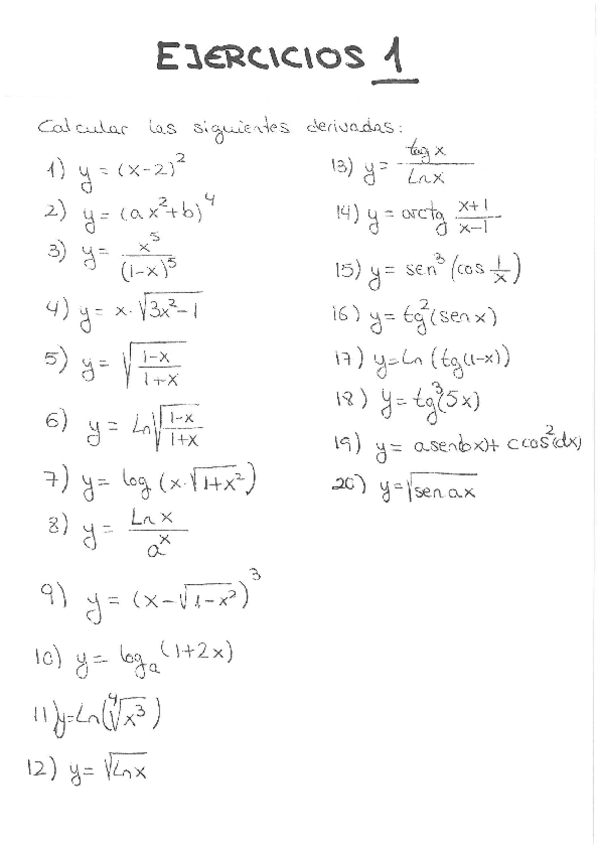 EJERCICIOS 1
Calcular las siguientes derivadas:
1) y = (x-2)²
2) y = (ax²+b)⁴
3) y = x⁵/(1-x)⁵
4) y = x·√(3x²-1)
5) y = √((1-x)/(1+x))
6) y = Ln√((1-x)/(1+x))
7) y = log (x·√(1+x²))
8) y = Ln x/aˣ
9) y = (x-√(1-x²))³
10) y = logₐ(1+2x)
11) y=Ln(⁴√x³)
12) y = √(Ln x)
13) y = tag x/Ln x
14) y = arctg (x+1)/(x-1)
15) y = sen³(cos 1/x)
16) y = tg²(sen x)
17) y=Ln (tg(1-x))
18) y = tg³(5x)
19) y = a sen(bx)+ c cos²(dx)
20) y=√(sen ax)